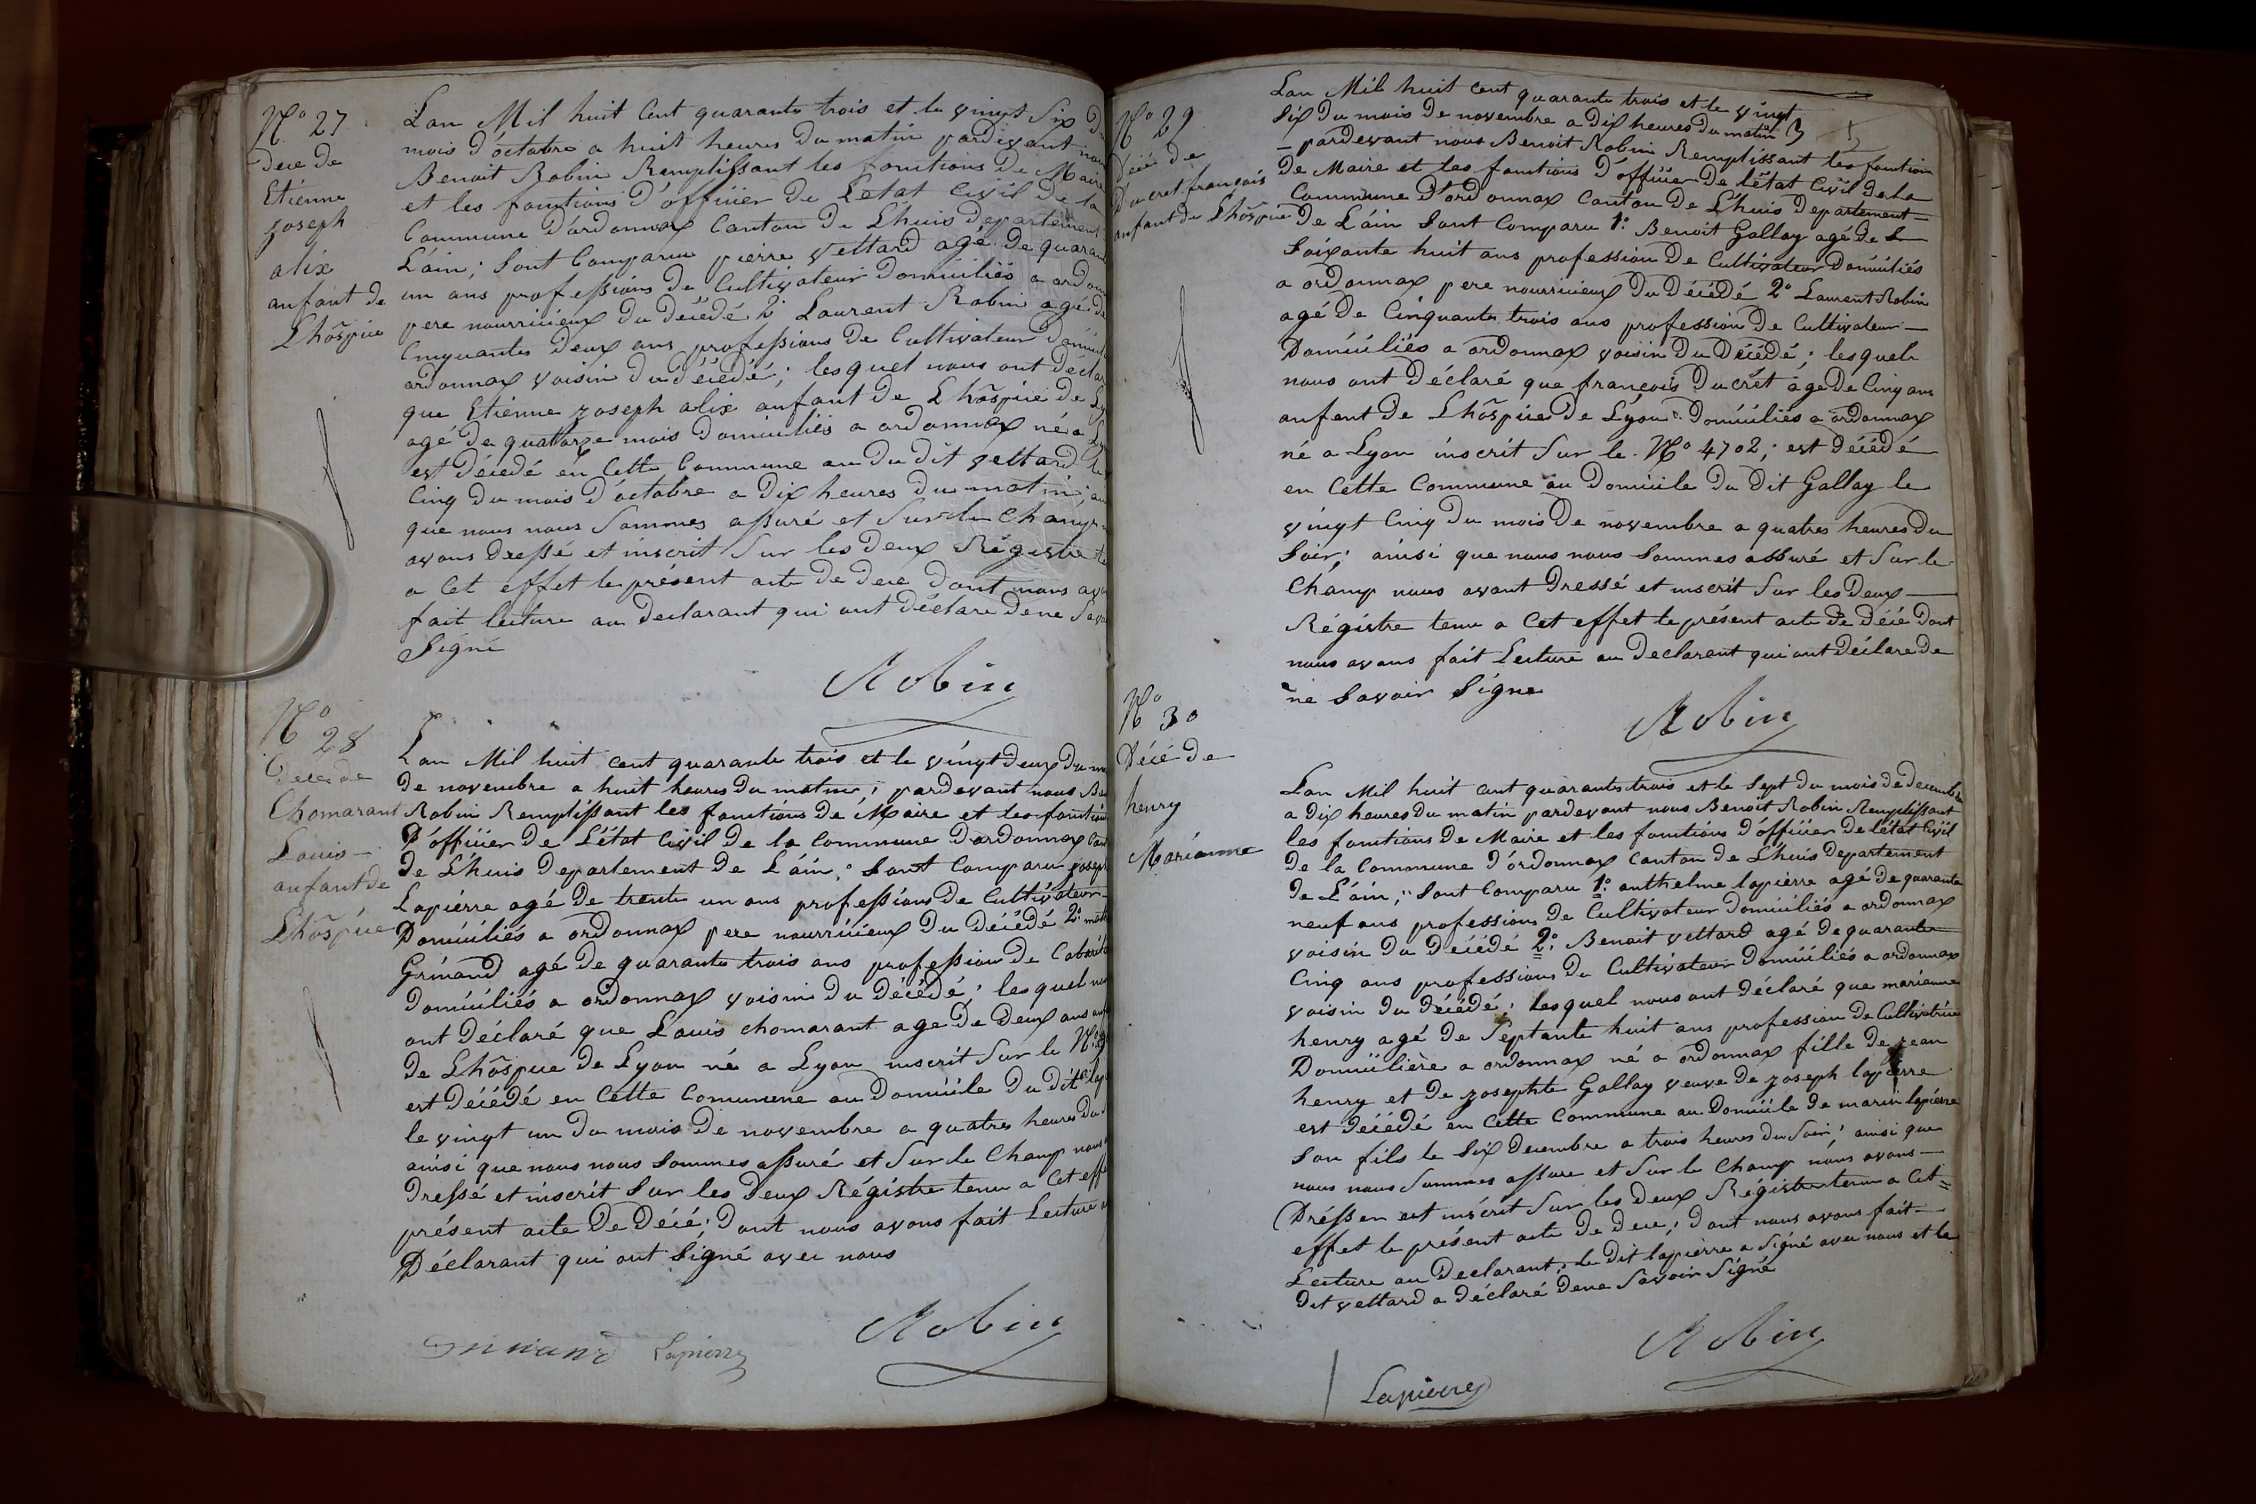 Nº 27
Dece de
Etienne
joseph
alix
anfant de
Lhôspice
Lan Mil huit Cent quarante trois et le vingt Six
mois d'octobre a huit heures du matin pardevant
Benoit Robin Remplissant les fonctions De Maire
et les fonctions d'officier De Létat Civil de la
Commune D'ordonnax Canton De Lhuis Departement
Láin; Sont Comparu pierre vettard agé De
un ans professions De Cultivateur Domiciliés a
pere nourricieux du Décédé 2º Laurent Robin agé de
Cinquantes Deux ans professions De Cultivateur
ordonnax voisin du Décédé; lesquel nous ont
que Etienne joseph alix anfant de Lhôspice De
agé De quatorze mois Domiciliés a ordonnax né a
est décedé en Cette Commune au Du dit vettard
Cinq Du mois D'octobre a Dix heures Du matin
que nous nous Sommes assuré et Sur le Champ
avons Dressé et inscrit Sur les Deux Régistre
a Cet effet le présent acte De Dece Dont nous
fait lecture au Declarant qui ont Déclare De ne
Signé
Robin
Nº 28
Deces de
Chomarant
Louis
anfant de
Lhôspice
Lan Mil huit cent quarante trois et le vingt Deux Du
De novembre a huit heures Du matin; pardevant nous
Robin Remplissant les fonctions De Maire et les
D'officier De Létat Civil De la Commune Dordonnax
De Lhuis Departement De Láin; Sont Comparu
Lapierre agé De trente un ans professions De Cultivateur
Domiciliés a ordonnax pere nourricieux Du Décédé 2º
Grinand agé De quarante trois ans profession De
Domiciliés a ordonnax voisin Du Décédé; lesquel
ont Déclaré que Louis chomarant age De Deux ans
De Lhôspice De Lyon né a Lyon inscrit Sur le Nº
est Décédé en Cette Commune au Domicile Du Dit
le vingt un Du mois De novembre a quatres heures Du
ainsi que nous nous Sommes assuré et Sur le Champ
Dressé et inscrit Sur les Deux Régistre tenu a Cet
présent acte De Décé; Dont nous avons fait Lecture
Déclarant qui ont Signé avec nous
Robin
Grinand Lapierre
Nº 29
Décé de
Ducret françois
anfant de Lhôspice
Lan Mil huit cent quarante trois et le vingt
Six Du mois De novembre a Dix heures du matin
pardevant nous Benoit Robin Remplissant les fonction
De Maire et les fonctions D'officier De létat Civil De la
Commune D'ordonnax Canton De Lhuis Departement
De Láin Sont Comparu 1º Benoit Gallay agé De
Soixante huit ans profession De Cultivateur Domiciliés
a ordonnax pere nourricieux Du Décédé 2º Laurent Robin
agé De Cinquante trois ans profession De Cultivateur
Domiciliés a ordonnax voisin Du Décédé; lesquel
nous ont Déclaré que françois Ducrêt age De Cinq ans
anfent De Lhôspice De Lyon Domiciliés a ordonnax
né a Lyon inscrit Sur le Nº 4702; est Décédé
en Cette Commune au Domicile Du Dit Gallay le
vingt Cinq Du mois De novembre a quatres heures Du
Soir; ainsi que nous nous Sommes assuré et Sur le
Champ nous avont Dressé et inscrit Sur les Deux
Régistre tenu a Cet effet le présent acte De Décé Dont
nous avons fait Lecture au Declarent qui ont Déclare De
ne Savoir Signe
Robin
Nº 30
Décé De
henry
Marianne
Lan Mil huit cent quarante trois et le Sept du mois de decembre
a Dix heures Du matin pardevant nous Benoit Robin Remplissant
les fonctions De Maire et les fonctions D'officier De létat Civil
De la Commune D'ordonnax Canton De Lhuis Departement
De Láin; Sont Comparu 1º anthelme lapierre agé De quarante
neuf ans profession De Cultivateur Domiciliés a ordonnax
voisin Du Décédé 2º Benoit vettard agé De quarante
Cinq ans professions De Cultivateur Domiciliés a ordonnax
voisin Du Décédé; lesquel nous ont Déclaré que marianne
henry agé De Septante huit ans profession De Cultivatrice
Domicilière a ordonnax né a ordonnax fille De jean
henry et De josephte Gallay veuve De joseph lapierre
est Décédé en Cette Commune au Domicile De marin lapierre
Son fils le Six Decembre a trois heures Du Soir; ainsi que
nous nous Sommes assure et Sur le Champ nous avons
Dresser et inscrit Sur les Deux Régistre tenu a Cet
effet le présent acte De Dece; Dont nous avons fait
Lecture au Declarant; le Dit lapierre a Signé avec nous et le
Dit vettard a Déclaré De ne Savoir Signé
Robin
Lapierre